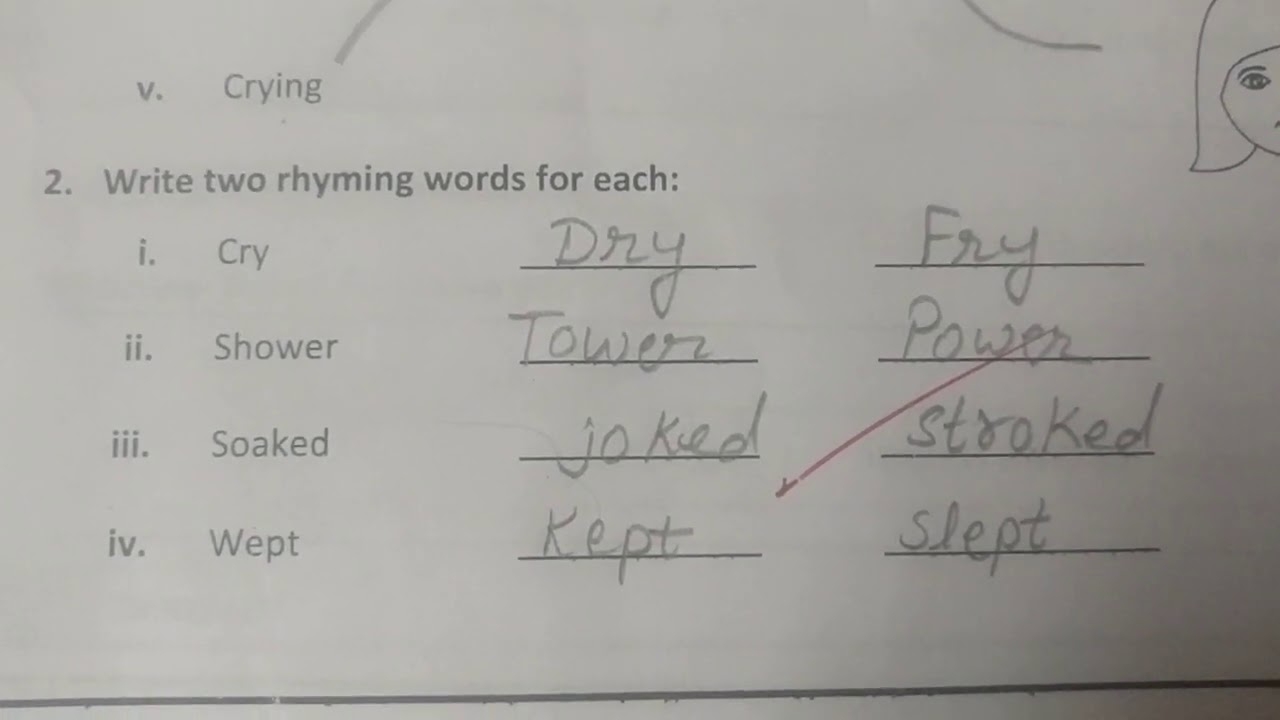 v. Crying
2. Write two rhyming words for each:
i. Cry Dry Fry
ii. Shower Tower Power
iii. Soaked joked stroked
iv. Wept Kept slept